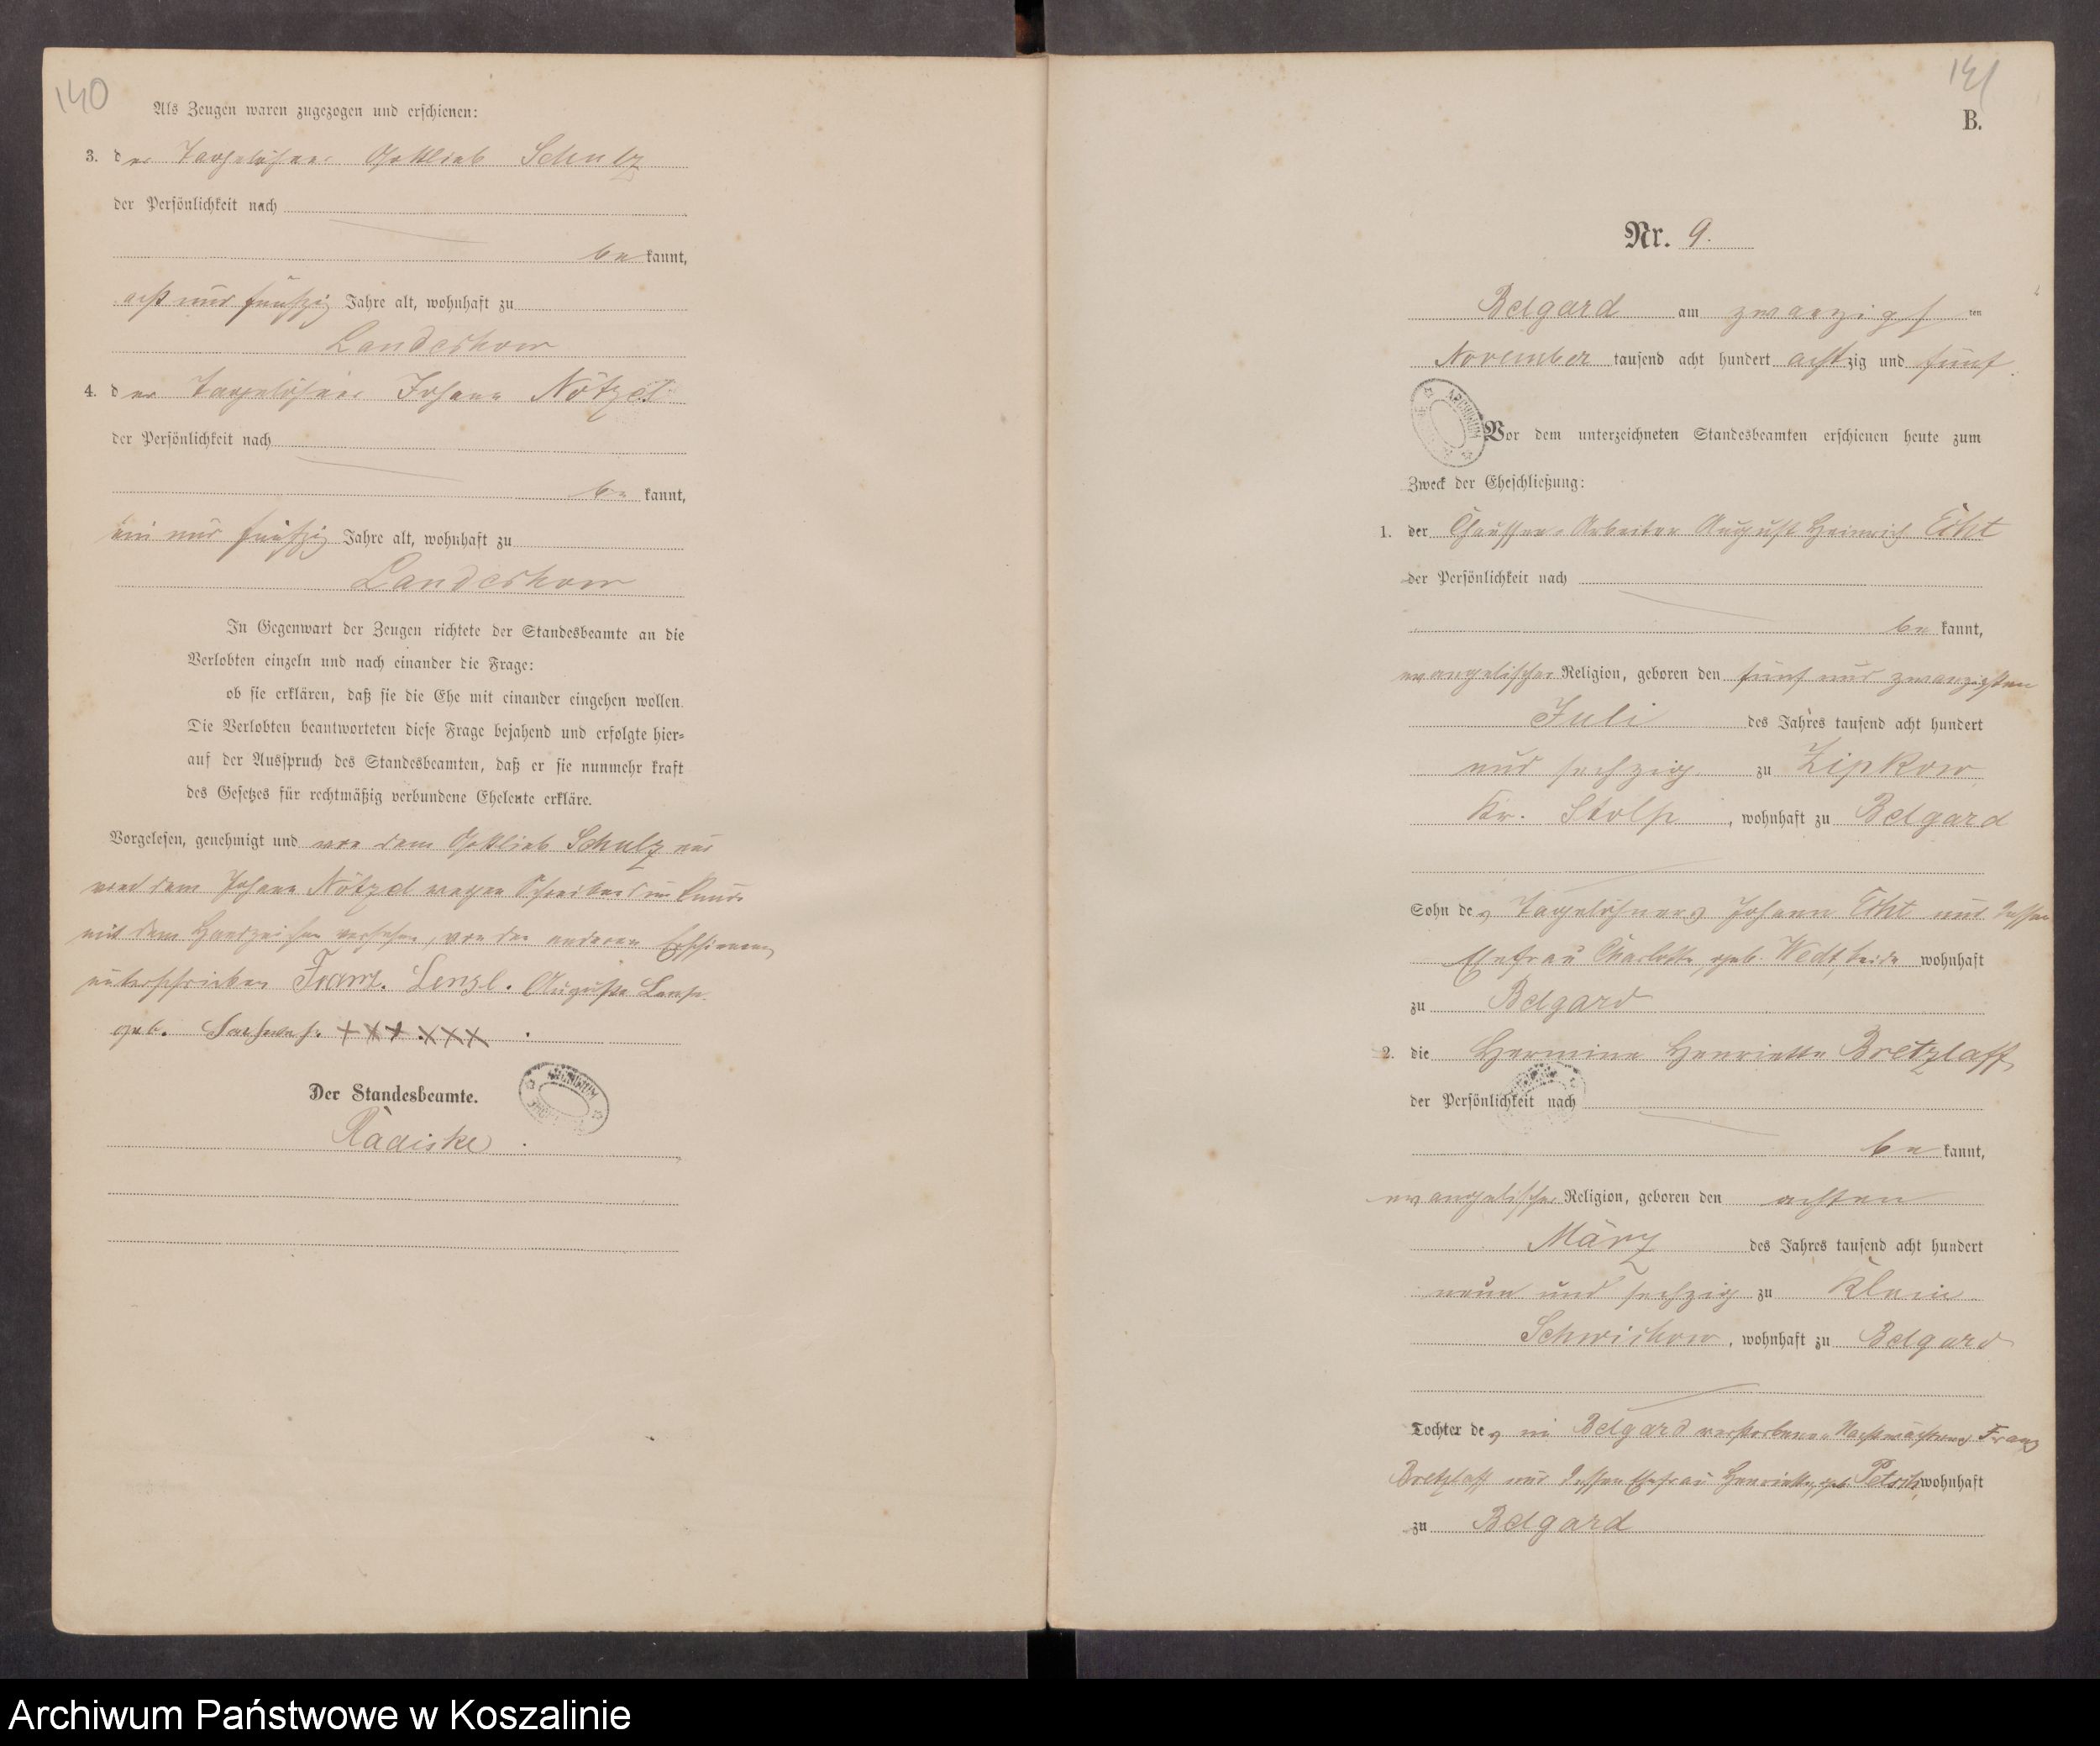 140
Als Zeugen waren zugezogen und erschienen:
3. der Tagelöhner Gottlieb Schulz
der Persönlichkeit nach
be kannt,
acht und fünfzig Jahre alt, wohnhaft zu
Landeshow
4. der Tagelöhner Johann Nötzel
der Persönlichkeit nach
be kannt,
ein und fünfzig Jahre alt, wohnhaft zu
Landeshow
In Gegenwart der Zeugen richtete der Standesbeamte an die
Verlobten einzeln und nach einander die Frage:
ob sie erklären, daß sie die Ehe mit einander eingehen wollen.
Die Verlobten beantworteten diese Frage bejahend und erfolgte hier=
auf der Ausspruch des Standesbeamten, daß er sie nunmehr kraft
des Gesetzes für rechtmäßig verbundene Eheleute erkläre.
Vorgelesen, genehmigt und von dem Gottlieb Schulz und
von dem Johann Nötzel wegen
mit dem Handzeichen versehen, von den anderen Erschienenen
unterschrieben Franz Auguste
geb. +++ xxx
Der Standesbeamte.
Radiske
ARCHIWUM
141
B.
Nr. 9.
Belgard am zwanzigsten
November tausend acht hundert achtzig und fünf
ARCHIWUM
Vor dem unterzeichneten Standesbeamten erschienen heute zum
Zweck der Eheschließung:
1. der Chaussee-Arbeiter August Heinrich
der Persönlichkeit nach
be kannt,
evangelischer Religion, geboren den fünf und zwanzigsten
Juli des Jahres tausend acht hundert
und sechzig zu Zipkow
Kr. Stolp, wohnhaft zu Belgard
Sohn des Tagelöhners Johann und dessen
Ehefrau Charlotte geb. beide wohnhaft
zu Belgard
2. die Hermine Henriette Bretzlaff
der Persönlichkeit nach
be kannt,
evangelischer Religion, geboren den achten
März des Jahres tausend acht hundert
neun und sechzig zu Klein
Schwichow, wohnhaft zu Belgard
Tochter des in Belgard verstorbenen Nachtwächters Franz
Bretzlaff und dessen Ehefrau Henriette geb. wohnhaft
zu Belgard
Archiwum Państwowe w Koszalinie